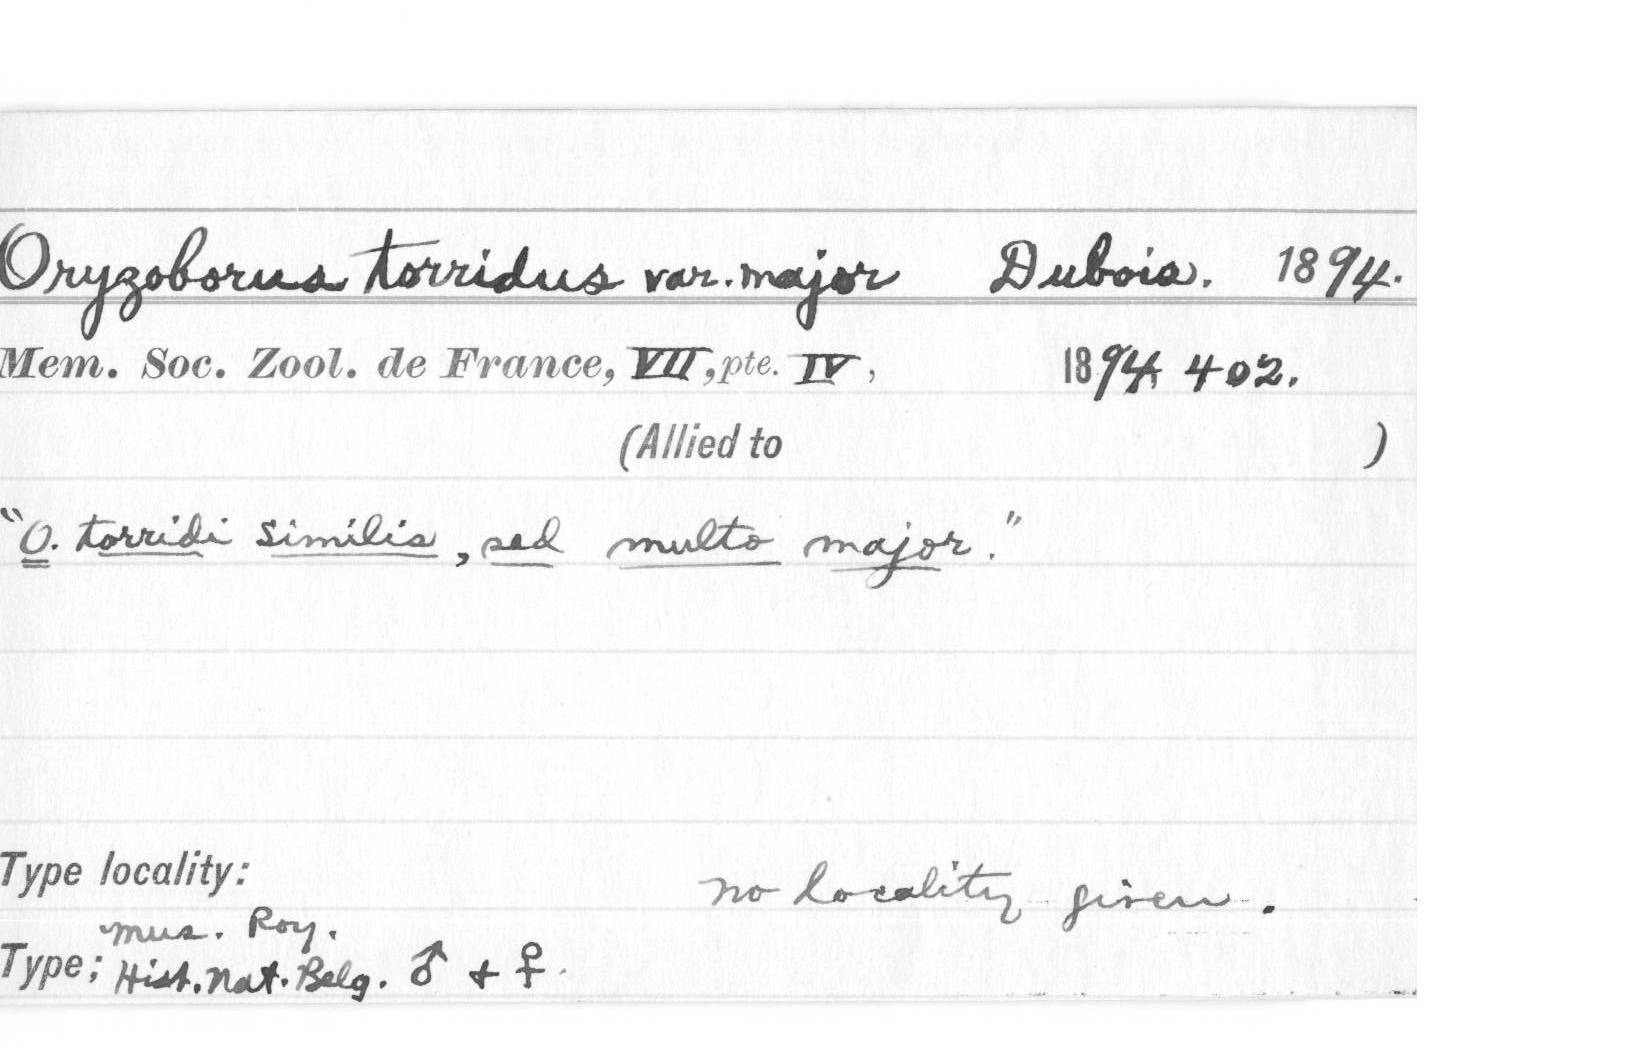 Oryzoborus torridus var. major Dubois. 1894.
Mem. Soc. Zool. de France, VII, pte. IV, 1894, 402.
(Allied to )
"O. torridi similis, sed multo major."
Type locality: no locality given.
mus. Roy.
Type; Hist. Nat. Belg. ♂ + ♀.